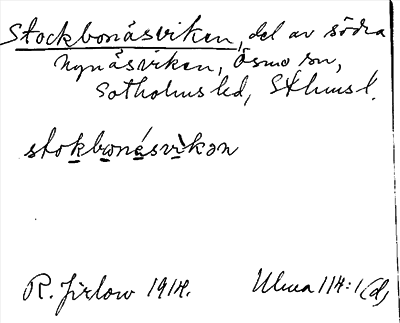 Stockbonäsviken, del av södra
Nynäsviken, Ösmo sn,
Sotholms hd, Sthlms l.
stokbonásvìkən
R. Jirlow 1914.